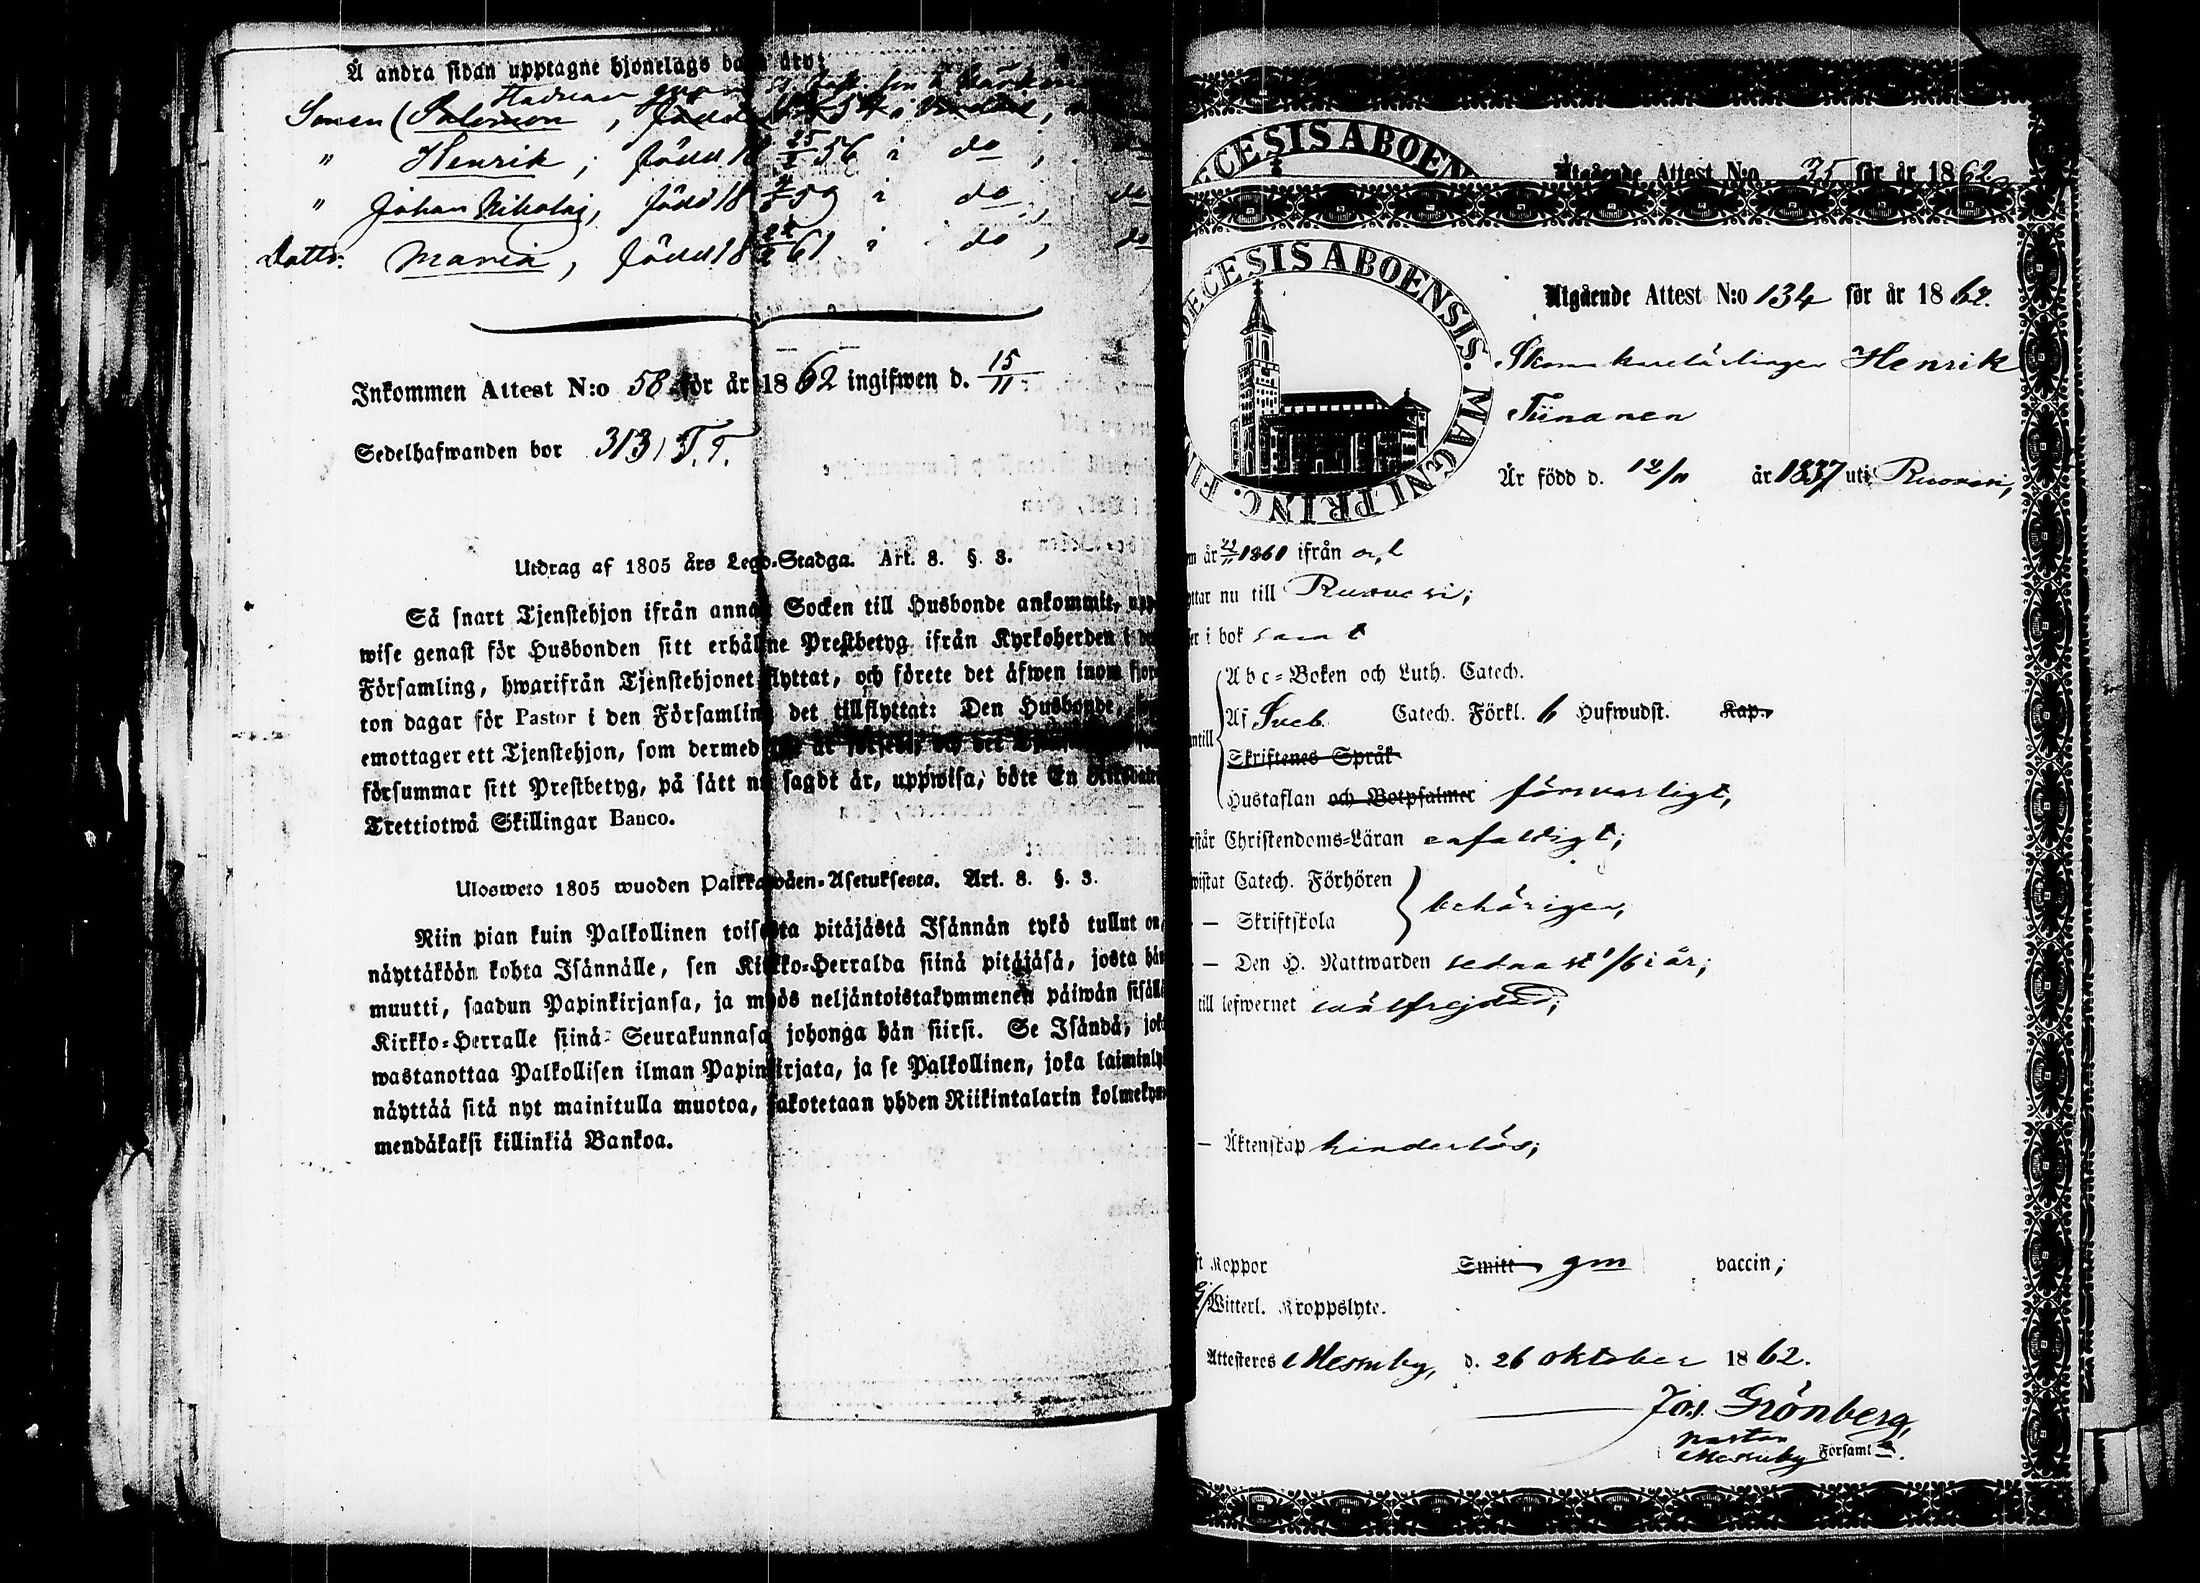 Å andra sidan upptagne hjonelags barn äro:
Sonen (Salomon, född
" Henrik, född 18 25/2 56 i do, do
" Johan Nikolaj, född 18 59 i do, do
Dottr. Maria, född 18 61 i do, do
Inkommen Attest N:o 58 för år 1862 ingifwen d. 15/11
Sedelhafwanden bor 313, T.T.
Utdrag af 1805 års Lego-Stadga. Art. 8. §. 3.
Så snart Tjenstehjon ifrån annan Socken till Husbonde ankommit, upp-
wise genast för Husbonden sitt erhållne Prestbetyg ifrån Kyrkoherden i
Församling, hwarifrån Tjenstehjonet flyttat, och förete det äfwen inom fjor-
ton dagar för Pastor i den Församling det tillflyttat: Den Husbonde,
emottager ett Tjenstehjon, som dermed
försummar sitt Prestbetyg, på sätt nu sagdt är, uppwisa, böte En Riksdaler
Trettiotwå Skillingar Banco.
Ulosweto 1805 wuoden Palkkawäen-Asetuksesta. Art. 8. §. 3.
Niin pian kuin Palkollinen toisesta pitäjästä Isännän tykö tullut on,
näyttäköön kohta Isännälle, sen Kirkko-Herralda siinä pitäjäsä, josta hän
muutti, saadun Papinkirjansa, ja myös neljäntoistakymmenen päiwän sisällä
Kirkko-Herralle siinä Seurakunnasa johonga hän siirsi. Se Isändä, joka
wastanottaa Palkollisen ilman Papinkirjata, ja se Palkollinen, joka laiminlyö
näyttää sitä nyt mainitulla muotoa, sakotetaan yhden Riikintalarin kolmekym-
mendäkaksi killinkiä Bankoa.
ECESIS ABOEN
Utgående Attest N:o 35 för år 1862
DECESIS ABOENSIS. MAGNI PRINC. FI
Utgående Attest N:o 134 för år 1862.
Skomakarelärlingen Henrik
Tiinanen
Är född d. 12/11 år 1837 uti Ruovesi,
m år 1860 ifrån
ttar nu till Ruovesi;
er i bok samt
ntill
Abc-Boken och Luth. Catech.
Af Sveb. Catech. Förkl. 6 Hufwudst. Kap.
Skriftenes Språk
Hustaflan och Botpsalmer försvarligt,
rstår Christendoms-Läran enfaldigt;
wistat Catech. Förhören
— Skriftskola
behörigen,
— Den H. Nattwarden sednast 1/6 i år;
till lefwernet wälfrejdad;
— Äktenskap hinderlös;
ft Koppor Smitt gm vaccin;
Witterl. Kroppslyte.
Attesteres i Messuby, d. 26 Oktober 1862.
Jos. Grönberg,
Pastor
i Messuby Forsaml.